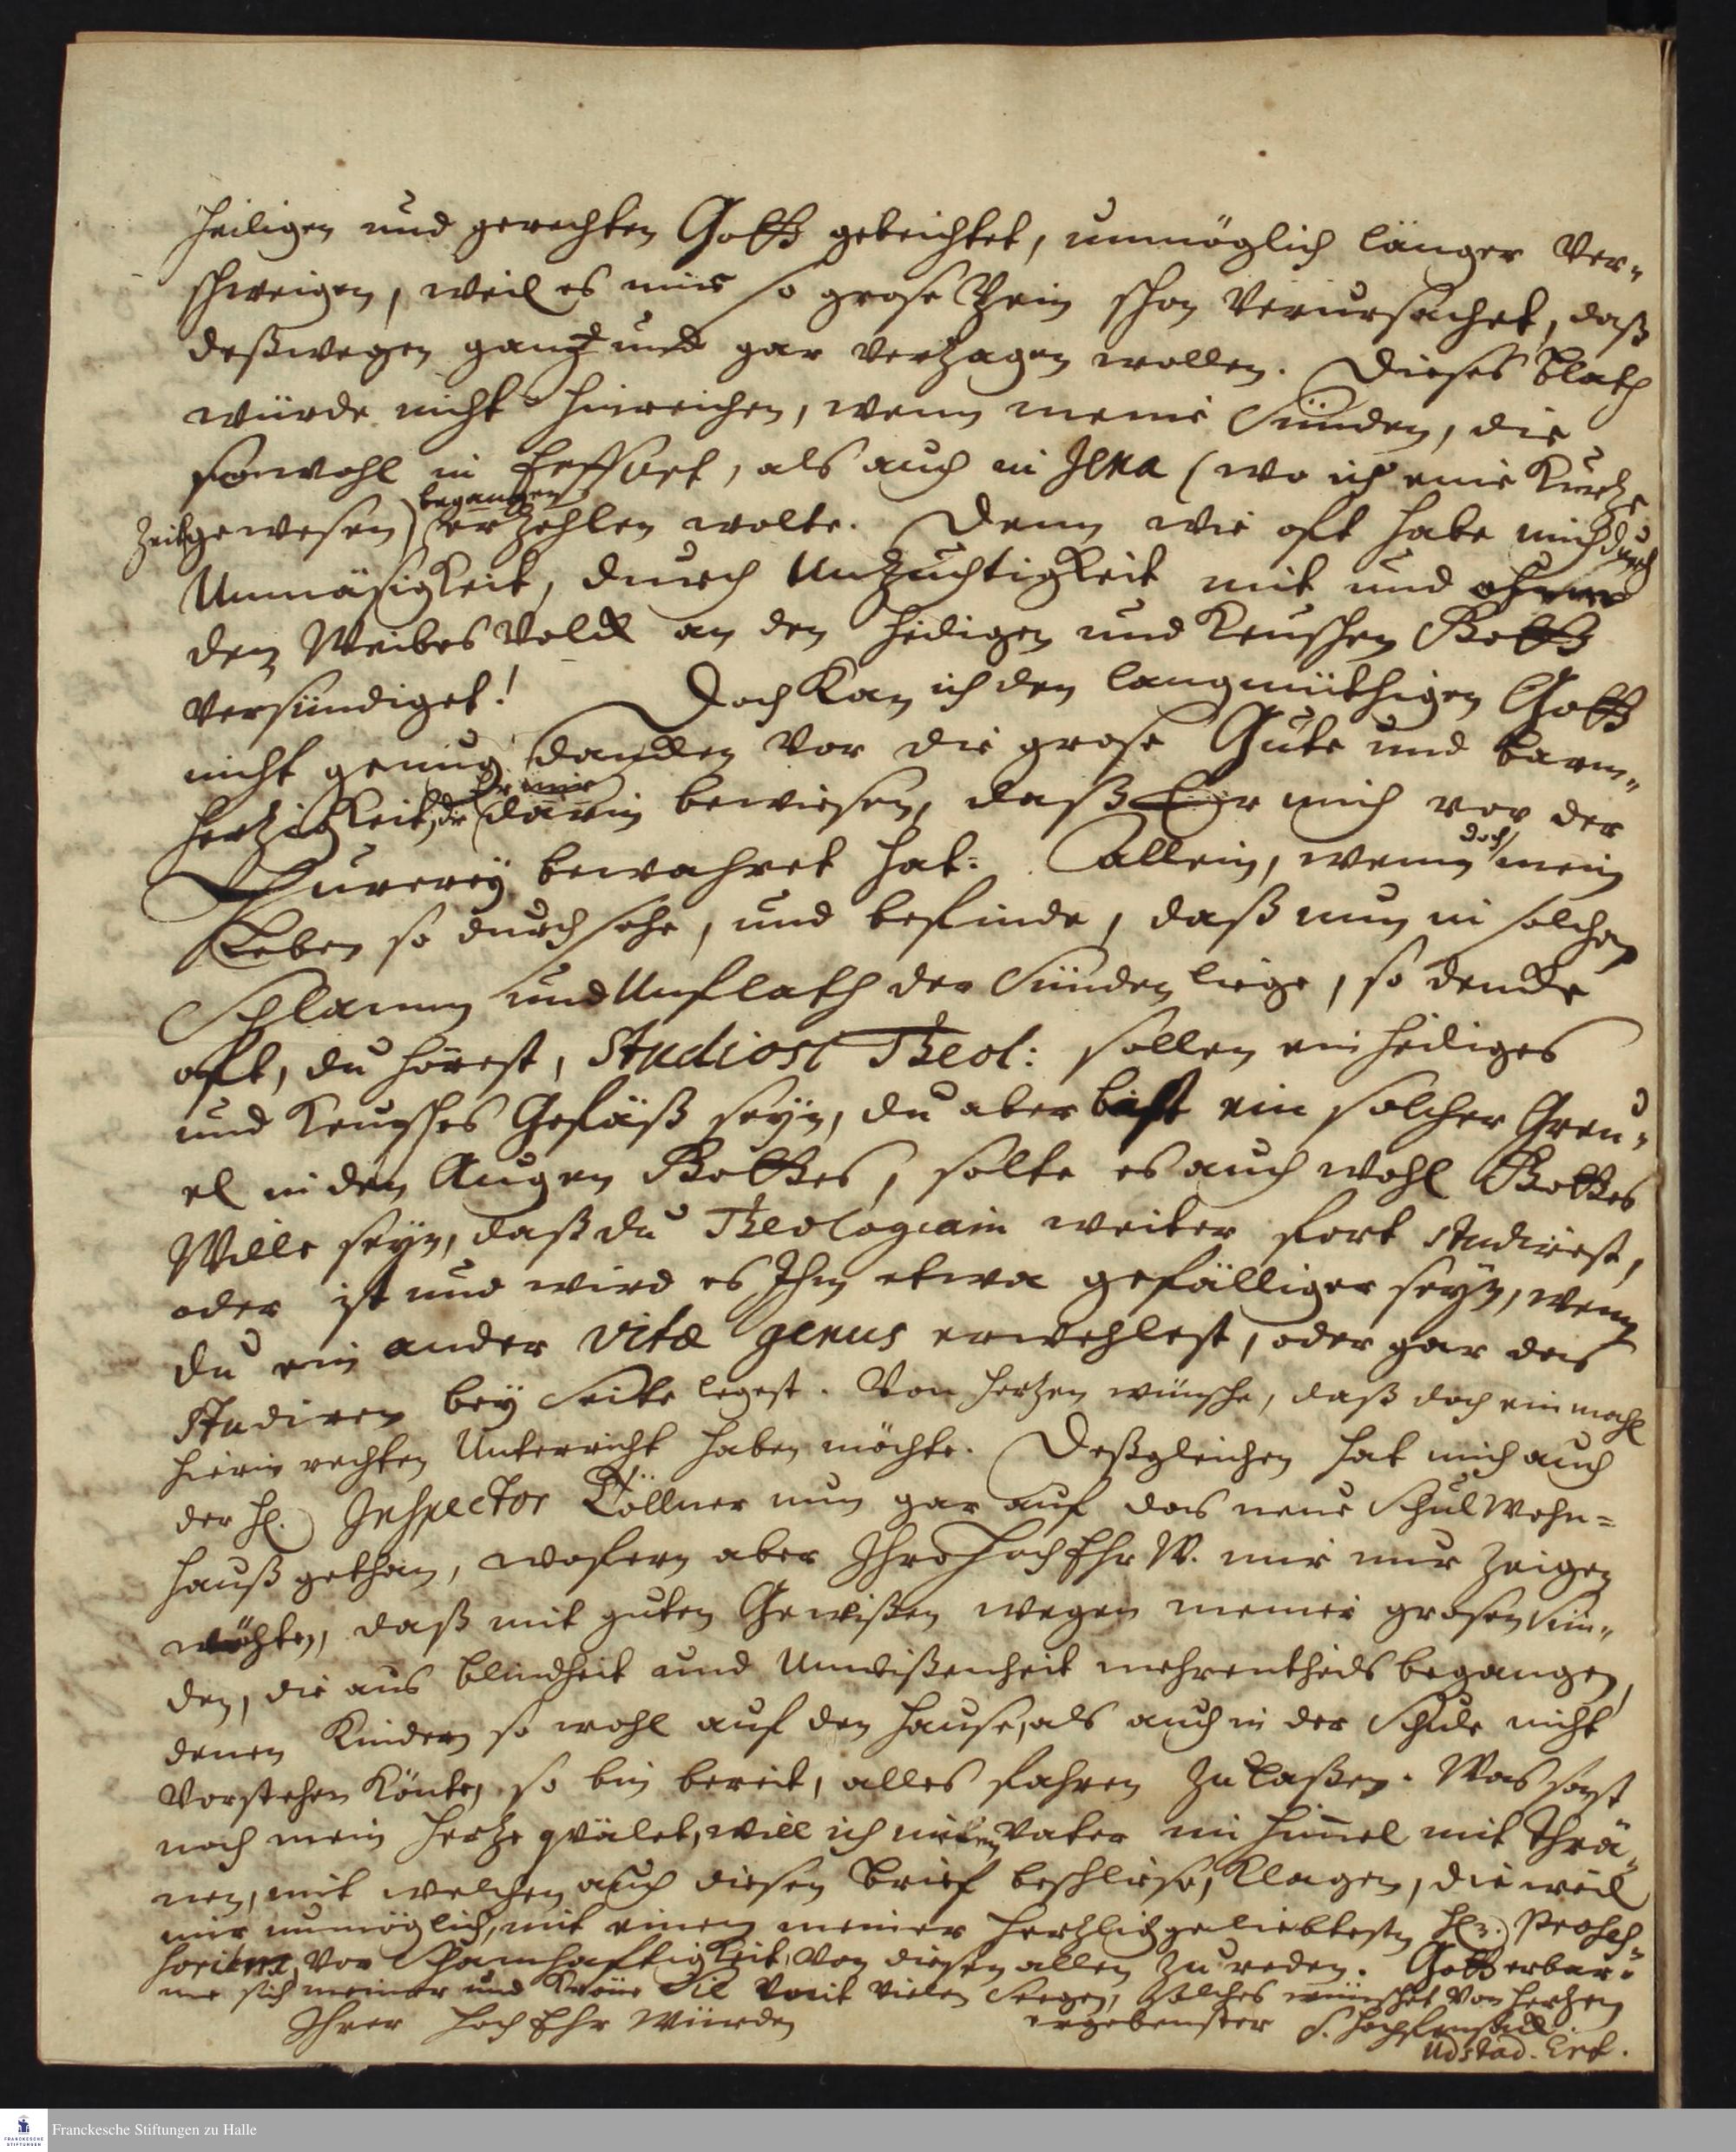 heiligen und gerechten Gott gebeichtet, unmöglich länger ver„
schweigen, weil es mir so grose Pein schon verursachet, daß
deßwegen gantz und gar verzagen wollen. Dieses blath
würde nicht hinreichen, wenn meine Sünden, die
sowohl in Erffurt, als auch in Jena (wo ich eine kurtze
Zeit gewesen) begangen erzehlen wolte. Denn wie oft habe mich durch
Unmäsigkeit, durch Unzuchtigkeit mit und ohne
den Weibes Volck an den heiligen und keuschen Gott
versündiget! Doch kan ich den langmüthigen Gott
nicht genug dancken vor die grose Güte und barm„
hertzigkeit, die Er mir darin bewiesen, daß Er mich vor der
Hurerey bewahret hat. Allein, wenn doch mein
Leben so durch sehe, und befinde, daß nun in solchen
Schlamm und Unflath der Sünden liege, so dencke
oft, du hörest, Studiosi Theol: sollen ein heiliges
und keusches Gefäß seyn, du aber bist ein solcher Greu„
el in den Augen Gottes, solte es auch wohl Gottes
Wille seyn, daß du Theologiam weiter fort studirest,
oder ist und wird es Ihm etwa gefälliger seyn, wenn
du ein ander vitæ genus erwehlest, oder gar das
Studiren bey Seite legest. Von hertzen wünsche, daß doch ein mahl
hierin rechten Unterricht haben möchte. Deßgleichen hat mich auch
der H. Inspector Töllner nun gar auf das neue Schul Wohn=
hauß gethan, wofern aber Ihro HochEhrW. mir nur zeigen
möchten, daß mit guten Gewißen wegen meiner grosen Sün„
den, die aus blindheit und Unwißenheit mehrentheils begangen,
denen Kindern so wohl auf den Hause, als auch in der Schule nicht
vorstehen könte, so bin bereit, alles fahren zu laßen. Was sonst
noch mein Hertze qvälet, will ich meinem Vater im Himmel mit Thrä„
nen, mit welchen auch diesen brief beschliese, klagen, die weil
mir unmöglich, mit einem meiner hertzlich geliebtesten HE. Profes„
sorium, vor Schamhaftigkeit von diesen allen zu reden. Gott erbar„
me sich meiner und kröne Sie mit vielen Seegen, Solches wünschet von hertzen
Ihrer Hoch Ehr Würden ergebenster